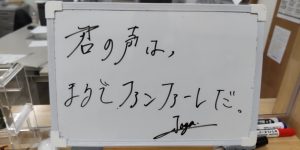 君の声は、
まるでファンファーレだ。